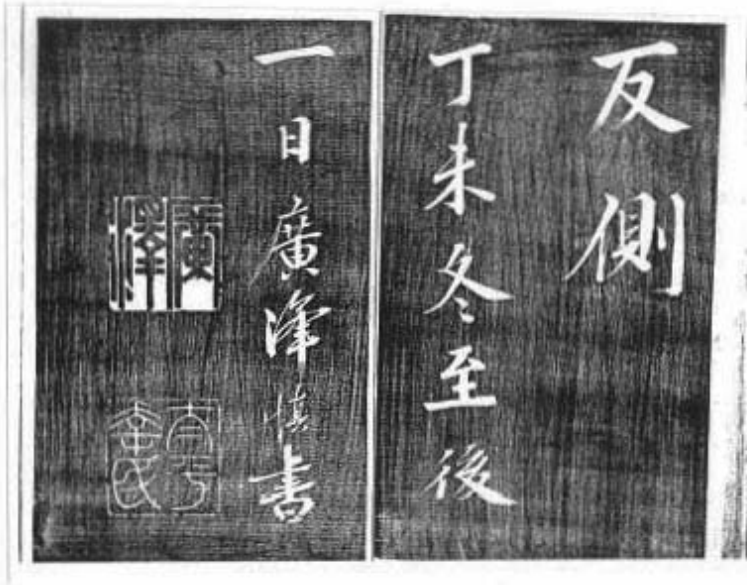 反側
丁未冬至後
一日廣澤慎書
廣澤